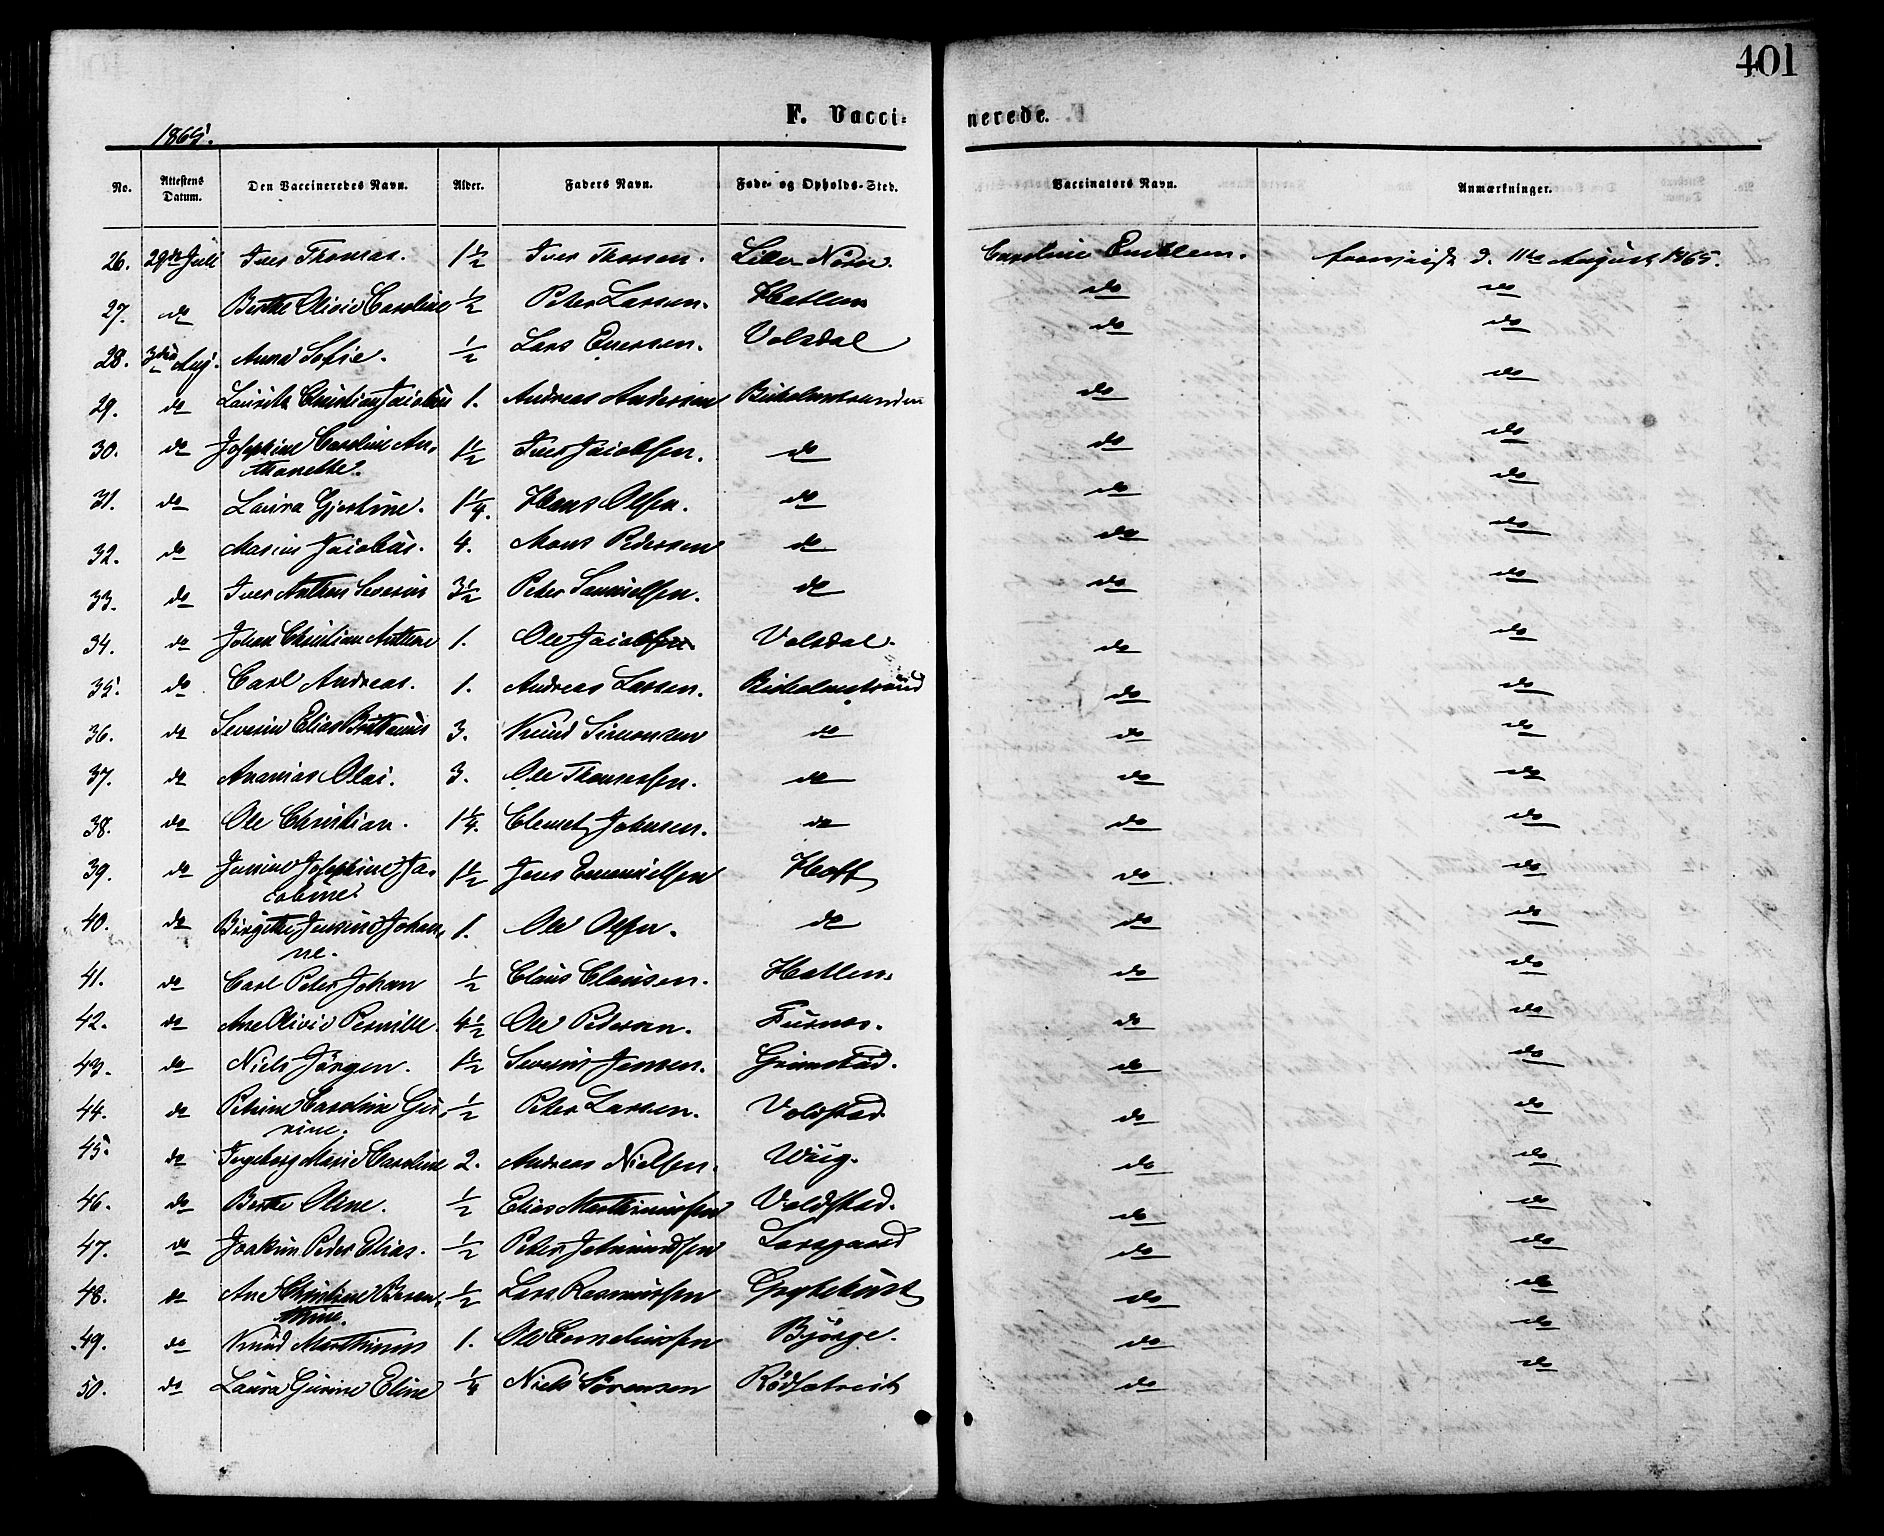 401
F. Vacci-
nerede.
1865.
No. Attestens Datum. Den Vaccineredes Navn. Alder. Faders Navn. Føde- og Opholds-Sted. Vaccinators Navn. Anmærkninger.
26. 29de Juli Iver Thomas. 1 1/2 Iver Thorsen. Caroline d. 11te August 1865.
27. do Berthe Olivie Caroline 1/2 Peter Larsen. Hatlen do do
28. 3die Aug. Anna Sofie. 1/2 Lars Eversen. Volsdal do do
29. do Laurits Christian Jacobus 1. Andreas Andersen do do
30. do Josephine Caroline An-
thonette. 1 1/2 Iver Jacobsen. do do do
31. do Laura Gjertine. 1 1/4. Hans Olsen. do do do
32. do Masius Jacobus. 4. Mons Pedersen do do do
33. do Iver Anthon Severin 3 1/2 Peter Samuelsen. do do do
34. do Johan Christian 1. Ole Jacobsen. Volsdal. do do
35. do Carl Andreas. 1. Andreas Larsen. do do
36. do Severin Elias 3. Knud Simonsen do do do
37. do Ananias Olai. 3. Ole do do do
38. do Ole Christian. 1 1/4. Clemet Johnsen. do do do
39. do Josephine Ja-
cobine. 1 1/2 Jens Emanuelsen Hoff do do
40. do Birgithe Johan-
ne. 1. Ole Olsen. do do do
41. do Carl Peter Johan 1/2 Claus Clausen. Hatlen. do do
42. do Ane Olivie Pernille. 4 1/2 Ole Pedersen. Furnes. do do
43. do Niels Jörgen. 1 1/2 Severin Jensen. Grimstad. do do
44. do Petrine Caroline Gu-
rine. 1/2 Peter Larsen. Voldstad do do
45. do Ingeborg Marie Caroline 2. Andreas Nielsen. Wiig. do do
46. do Berthe Oline. 1/2 Elias Martinussen Voldstad. do do
47. do Joakim Peder Elias. 1/2 Peter Larsgaard do do
48. do Ane Christine Beren-
thine. 1/2 Lars Rasmussen do do
49. do Knud Marthinus 1. Ole Corneliussen Bjørge. do do
50. do Laura Gurine Eline 1/4 Niels Sørensen do do